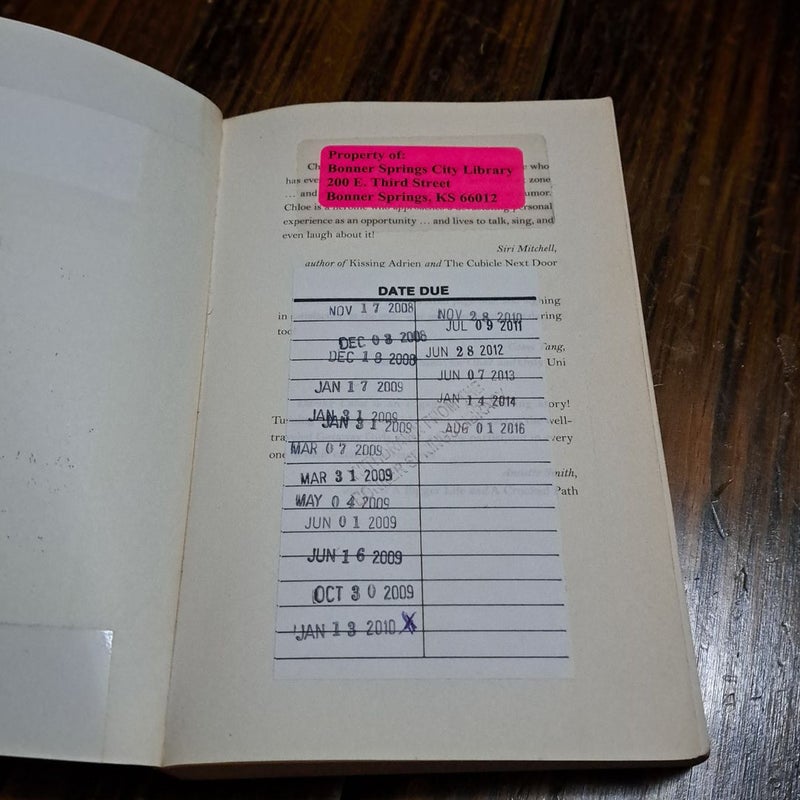 Property of:
Bonner Springs City Library
200 E. Third Street
Bonner Springs, KS 66012
Ch who
has eve zone
... and umor.
Chloe is a heroine who personal
experience as an opportunity ... and lives to talk, sing, and
even laugh about it!
Siri Mitchell,
author of Kissing Adrien and The Cubicle Next Door
ning
in ring
too
Tang,
Uni
ory!
Tu well-
tra very
one
Smith,
Life and A Crooked Path
DATE DUE
NOV 17 2008
DEC 03 2008
DEC 18 2008
JAN 17 2009
JAN 31 2009
JAN 31 2009
MAR 07 2009
MAR 31 2009
MAY 04 2009
JUN 01 2009
JUN 16 2009
OCT 30 2009
JAN 13 2010 X
NOV 28 2010
JUL 09 2011
JUN 28 2012
JUN 07 2013
JAN 14 2014
AUG 01 2016
WITHDRAWN FROM THE
BONNER SPRINGS LIBRARY